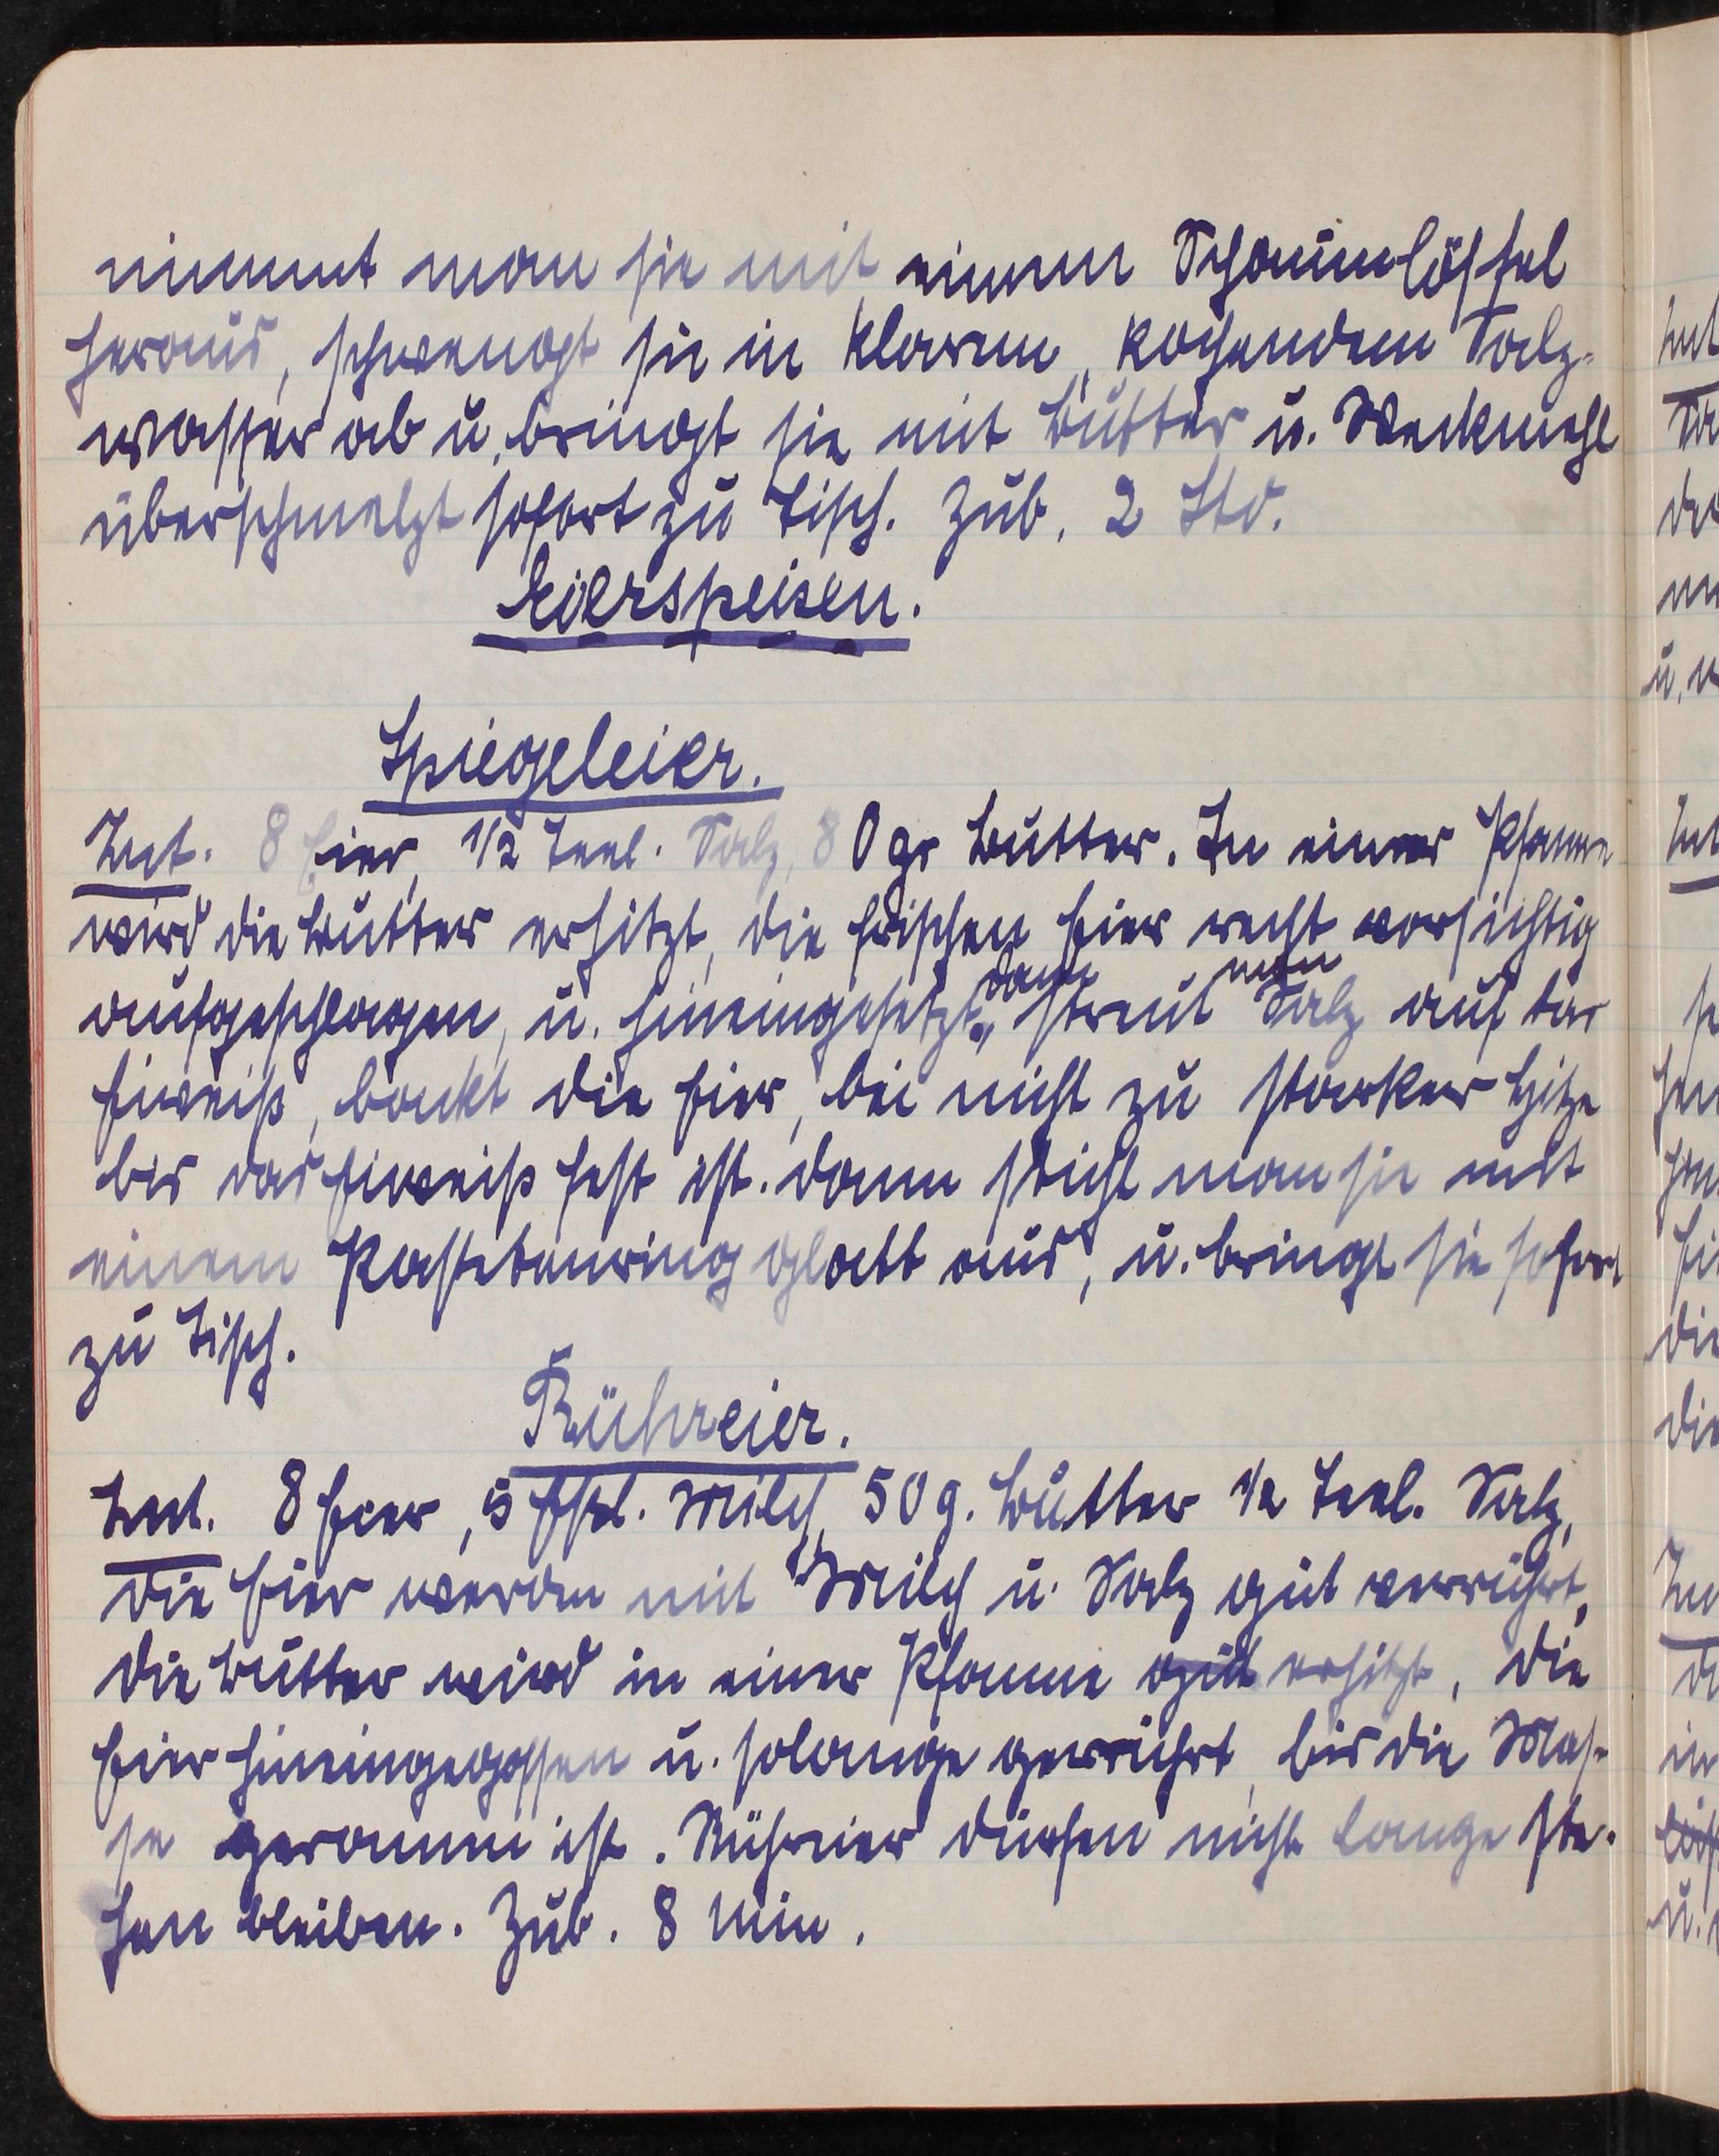 nimmt man sie mit einem Schaumlöffel
heraus, schwengt sie in klarem, kochendem Salz-
wasser ab u. bringt sie mit Butter u. Weckmehl
überschmelzt sofort zu Tisch. Zub. 2 Std.
Eierspeisen.
Spiegeleier.
Zut. 8 Eier, 1/2 Teel. Salz, 80 gr Butter. In einer Pfanne
wird die Butter erhitzt, die frischen Eier recht vorsichtig
dann man
aufgeschlagen, u. hineingesetzt, streut Salz auf das
Eiweiß, backt die Eier, bei nicht zu starker Hitze
bis das Eiweiß fest ist. dann sticht man sie mit
einem Pastetenring glatt aus, u. bringt sie sofort
zu Tisch.
Rühreier.
Zut. 8 Eier, 5 Eßl. Milch, 50 g. Butter 1/2 Teel. Salz,
die Eier werden mit Milch u. Salz gut verrührt,
die Butter wird in einer Pfanne gut erhitzt, die
Eier hineingegossen u. solange gerrührt, bis die Mas-
se geronnen ist. Rühreier dürfen nicht lange ste-
hen bleiben. Zub. 8 Min.